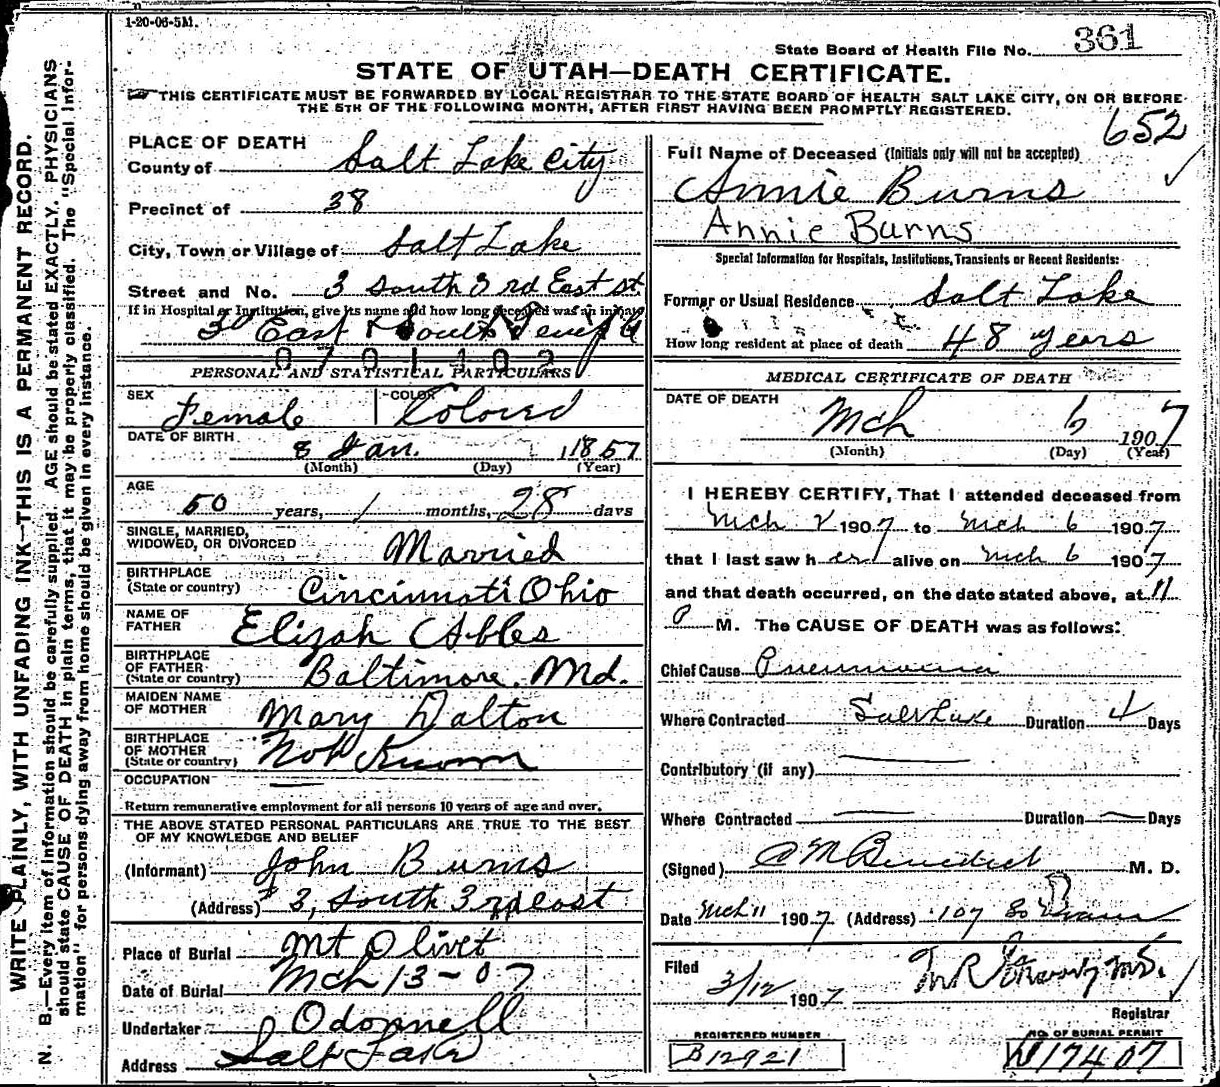 1-20-06-5M.
State Board of Health File No. 361
STATE OF UTAH—DEATH CERTIFICATE.
THIS CERTIFICATE MUST BE FORWARDED BY LOCAL REGISTRAR TO THE STATE BOARD OF HEALTH SALT LAKE CITY, ON OR BEFORE
THE 5TH OF THE FOLLOWING MONTH, AFTER FIRST HAVING BEEN PROMPTLY REGISTERED.
652
WRITE PLAINLY, WITH UNFADING INK—THIS IS A PERMANENT RECORD.
N. B.—Every item of information should be carefully supplied. AGE should be stated EXACTLY. PHYSICIANS
should state CAUSE OF DEATH in plain terms, that it may be properly classified. The "Special Infor-
mation" for persons dying away from home should be given in every instance.
PLACE OF DEATH
County of Salt Lake City
Precinct of 38
City, Town or Village of Salt Lake
Street and No. 3 South 3rd East st
If in Hospital or Institution, give its name and how long deceased was an inmate
3d East & South Temple
0701402
PERSONAL AND STATISTICAL PARTICULARS
SEX Female COLOR Colored
DATE OF BIRTH 8 Jan. 1857
(Month) (Day) (Year)
AGE
50 years, 1 months, 28 days
SINGLE, MARRIED,
WIDOWED, OR DIVORCED Married
BIRTHPLACE
(State or country) Cincinnati Ohio
NAME OF
FATHER Elizah Ables
BIRTHPLACE
OF FATHER
(State or country) Baltimore. Md.
MAIDEN NAME
OF MOTHER Mary Dalton
BIRTHPLACE
OF MOTHER
(State or country) Not Known
OCCUPATION —
Return remunerative employment for all persons 10 years of age and over.
THE ABOVE STATED PERSONAL PARTICULARS ARE TRUE TO THE BEST
OF MY KNOWLEDGE AND BELIEF
(Informant) John Burns
(Address) # 3, South 3rd east
Place of Burial Mt Olivet
Date of Burial Mch 13-07
Undertaker Odonnell
Address Salt Lake
Full Name of Deceased (Initials only will not be accepted)
Annie Burns
Annie Burns
Special Information for Hospitals, Institutions, Transients or Recent Residents:
Former or Usual Residence Salt Lake
How long resident at place of death 48 years
MEDICAL CERTIFICATE OF DEATH
DATE OF DEATH
Mch 6 1907
(Month) (Day) (Year)
I HEREBY CERTIFY, That I attended deceased from
Mch 2 1907 to Mch 6 1907
that I last saw her alive on Mch 6 1907
and that death occurred, on the date stated above, at 11
P M. The CAUSE OF DEATH was as follows:
Chief Cause Pneumonia
Where Contracted Salt Lake Duration 4 Days
Contributory (if any) —
Where Contracted — Duration — Days
(Signed) C M Benedict M. D.
Date Mch 11 1907 (Address) 107 So
Filed 3/12 1907 M.D.
Registrar
REGISTERED NUMBER
B12921
NO. OF BURIAL PERMIT
17407